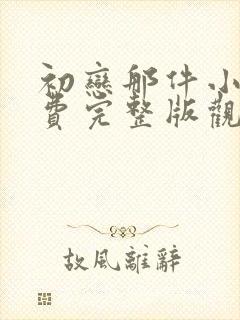 初戀那件小
費完整版觀
故風離辭